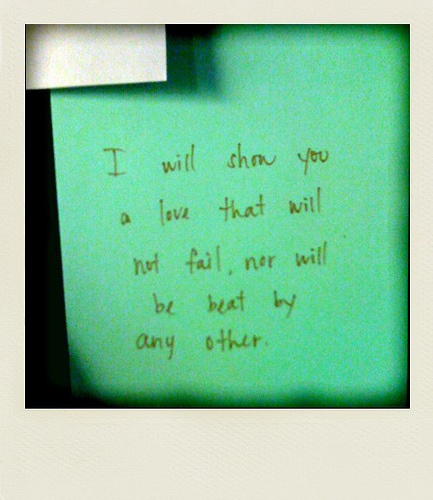 I will show you
a love that will
not fail, nor will
be beat by
any other.